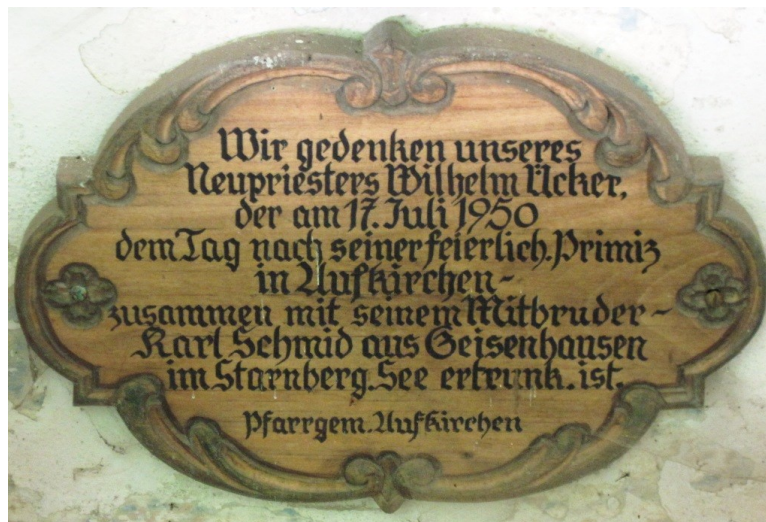 Wir gedenken unseres
Neupriesters Wilhelm Ücker,
der am 17. Juli 1950
dem Tag nach seiner feierlich. Primiz
in Aufkirchen-
zusammen mit seinem Mitbruder-
Karl Schmid aus Geisenhausen
im Starnberg. See ertrunk. ist.
Pfarrgem. Aufkirchen